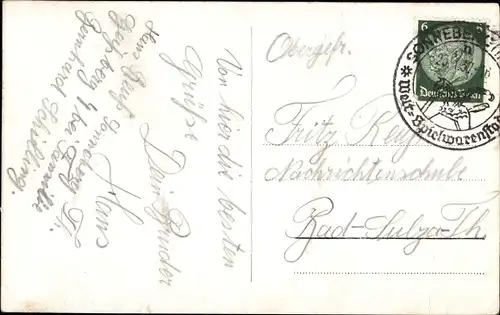 Von hier die besten
Grüße
Dein Bruder
Hans
Hans
Sonneberg Th.
bei Familie
Bernhard Schilling.
Obergefr.
Fritz
Nachrichtenschule
Bad-Sulza-Th.
6
Deutsches Reich
SONNEBERG
Welt-Spielwarenstadt